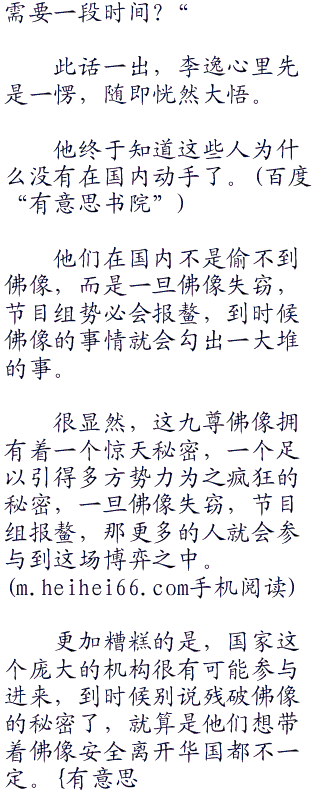 需要一段时间？“
此话一出，李逸心里先
是一愣，随即恍然大悟。
他终于知道这些人为什
么没有在国内动手了。(百度
“有意思书院”)
他们在国内不是偷不到
佛像，而是一旦佛像失窃，
节目组势必会报鳌，到时候
佛像的事情就会勾出一大堆
的事。
很显然，这九尊佛像拥
有着一个惊天秘密，一个足
以引得多方势力为之疯狂的
秘密，一旦佛像失窃，节目
组报鳌，那更多的人就会参
与到这场博弈之中。
(m.heihei66.com手机阅读)
更加糟糕的是，国家这
个庞大的机构很有可能参与
进来，到时候别说残破佛像
的秘密了，就算是他们想带
着佛像安全离开华国都不一
定。{有意思